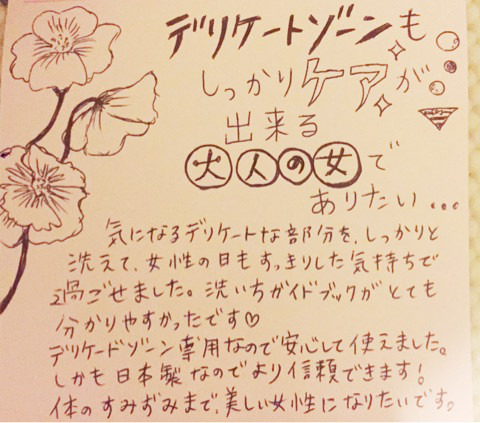 デリケートゾーンも
しっかりケアが
出来る
大人の女で
ありたい...
気になるデリケートな部分を、しっかりと
洗えて、女性の日もすっきりした気持ちで
過ごせました。洗い方ガイドブックがとても
分かりやすかったです♡
デリケートゾーン専用なので安心して使えました。
しかも日本製なのでより信頼できます!
体のすみずみまで、美しい女性になりたいです。